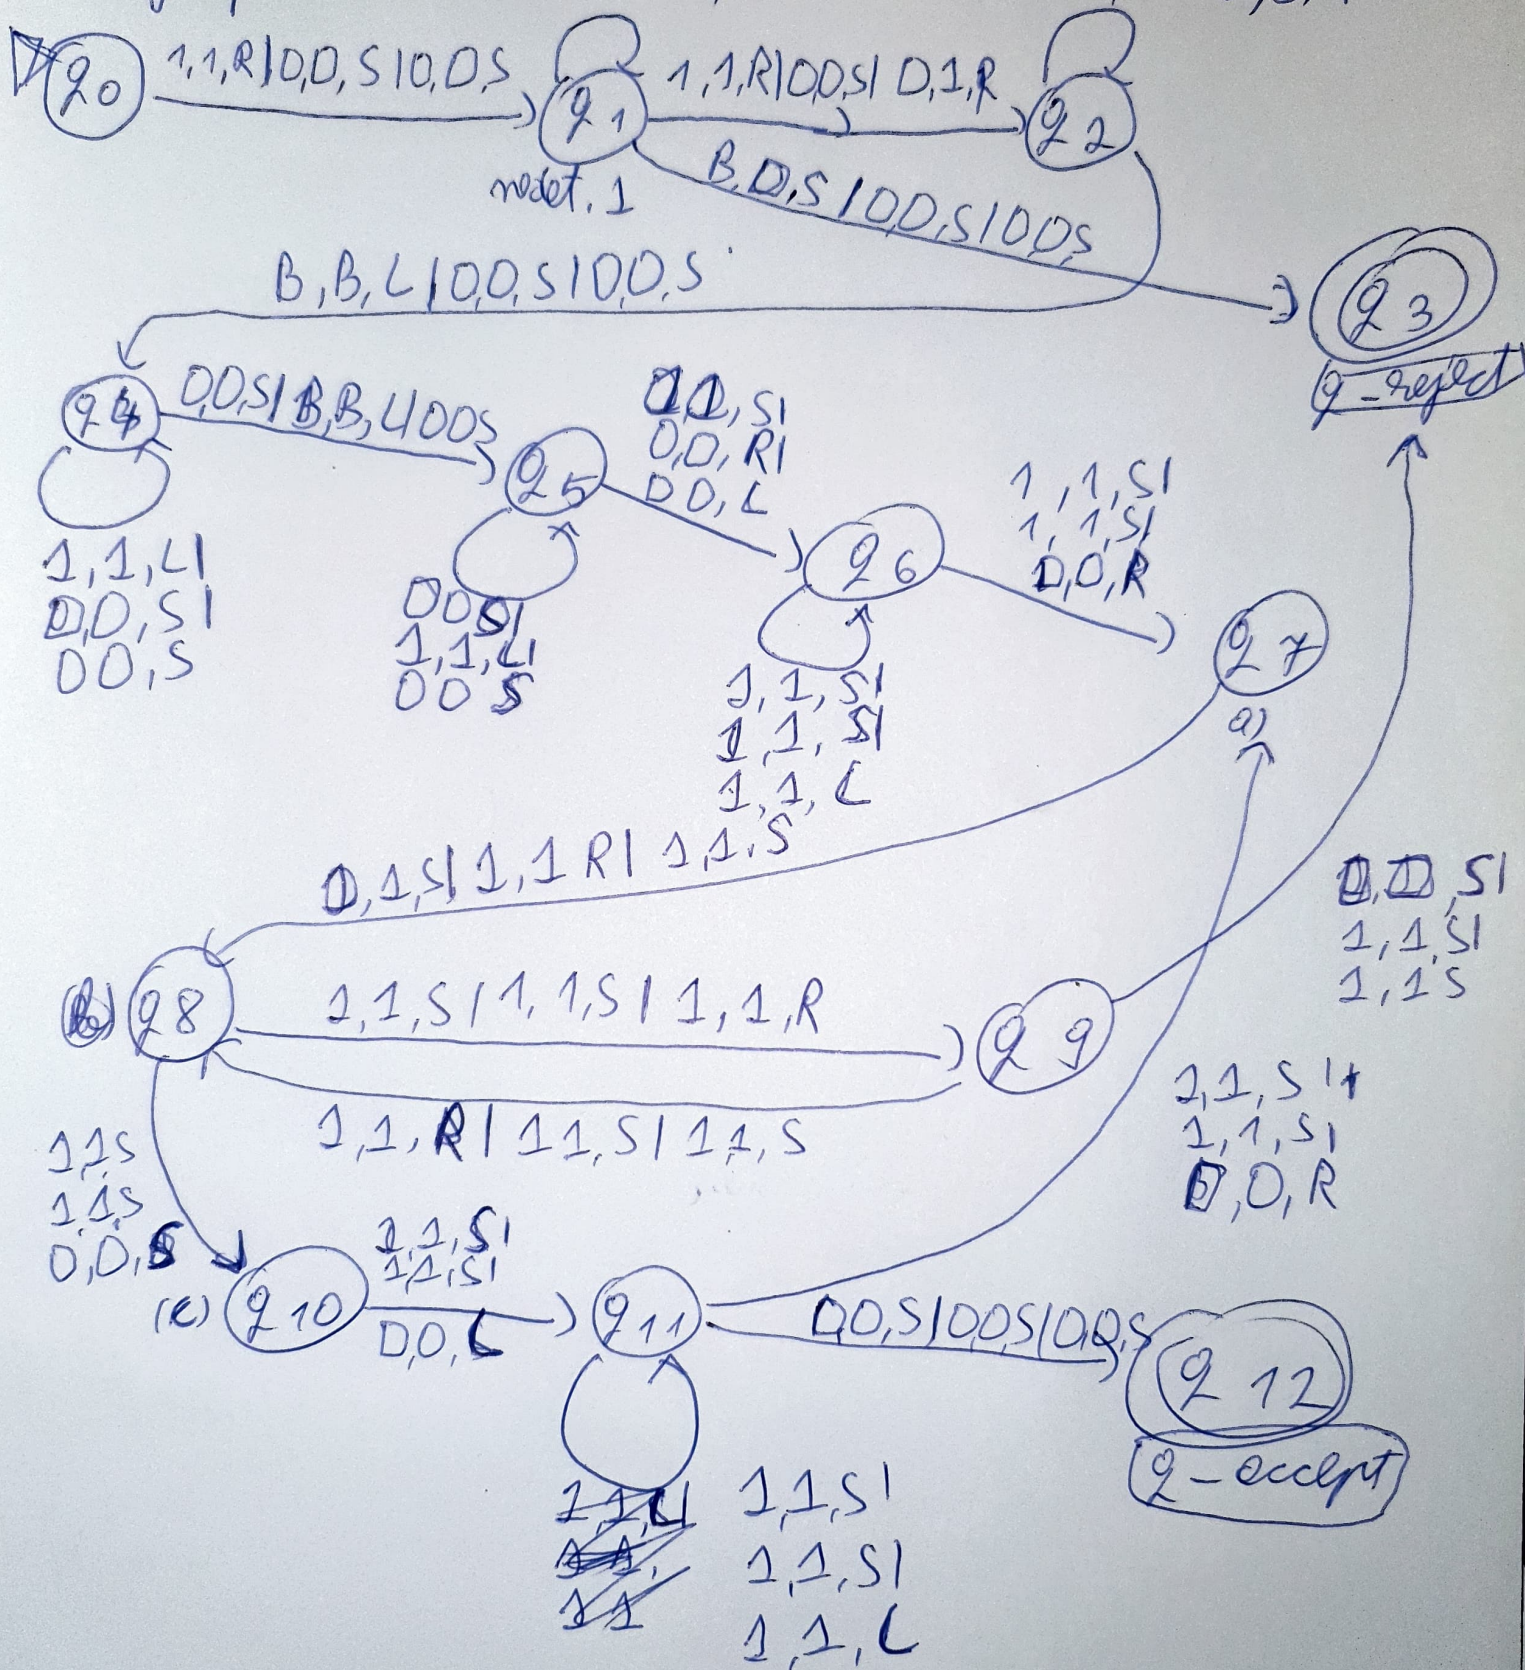 q0
1,1,R|0,0,S|0,0,S
q1
1,1,R|0,0,S|0,1,R
q2
nedet. 1
B,0,S|0,0,S|0,0,S
q3
q-reject
B,B,L|0,0,S|0,0,S
q4
0,0,S|B,B,L|0,0,S
1,1,L|
0,0,S|
0 0,S
q5
0 0 S|
1,1,L|
0 0 S
1,S|
0,0,R|
0 0,L
q6
1,1,S|
1,1,S|
1,1,L
1,1,S|
1,1,S|
0,0,R
q7
a)
0,1,S|1,1 R|1,1,S
q8
1,1,S|1,1,S|1,1,R
q9
1,1,R|1 1,S|1 1,S
,S|
1,1,S|
1,1 S
1,1,S|
1,1,S|
0,0,R
1,1 S
1,1,S
0,0,S
(c)
q10
1,1,S|
1,1,S|
0,0,L
q11
0,0,S|0,0,S|0,0,S
q12
q-accept
1,1,S|
1,1,S|
1,1,L